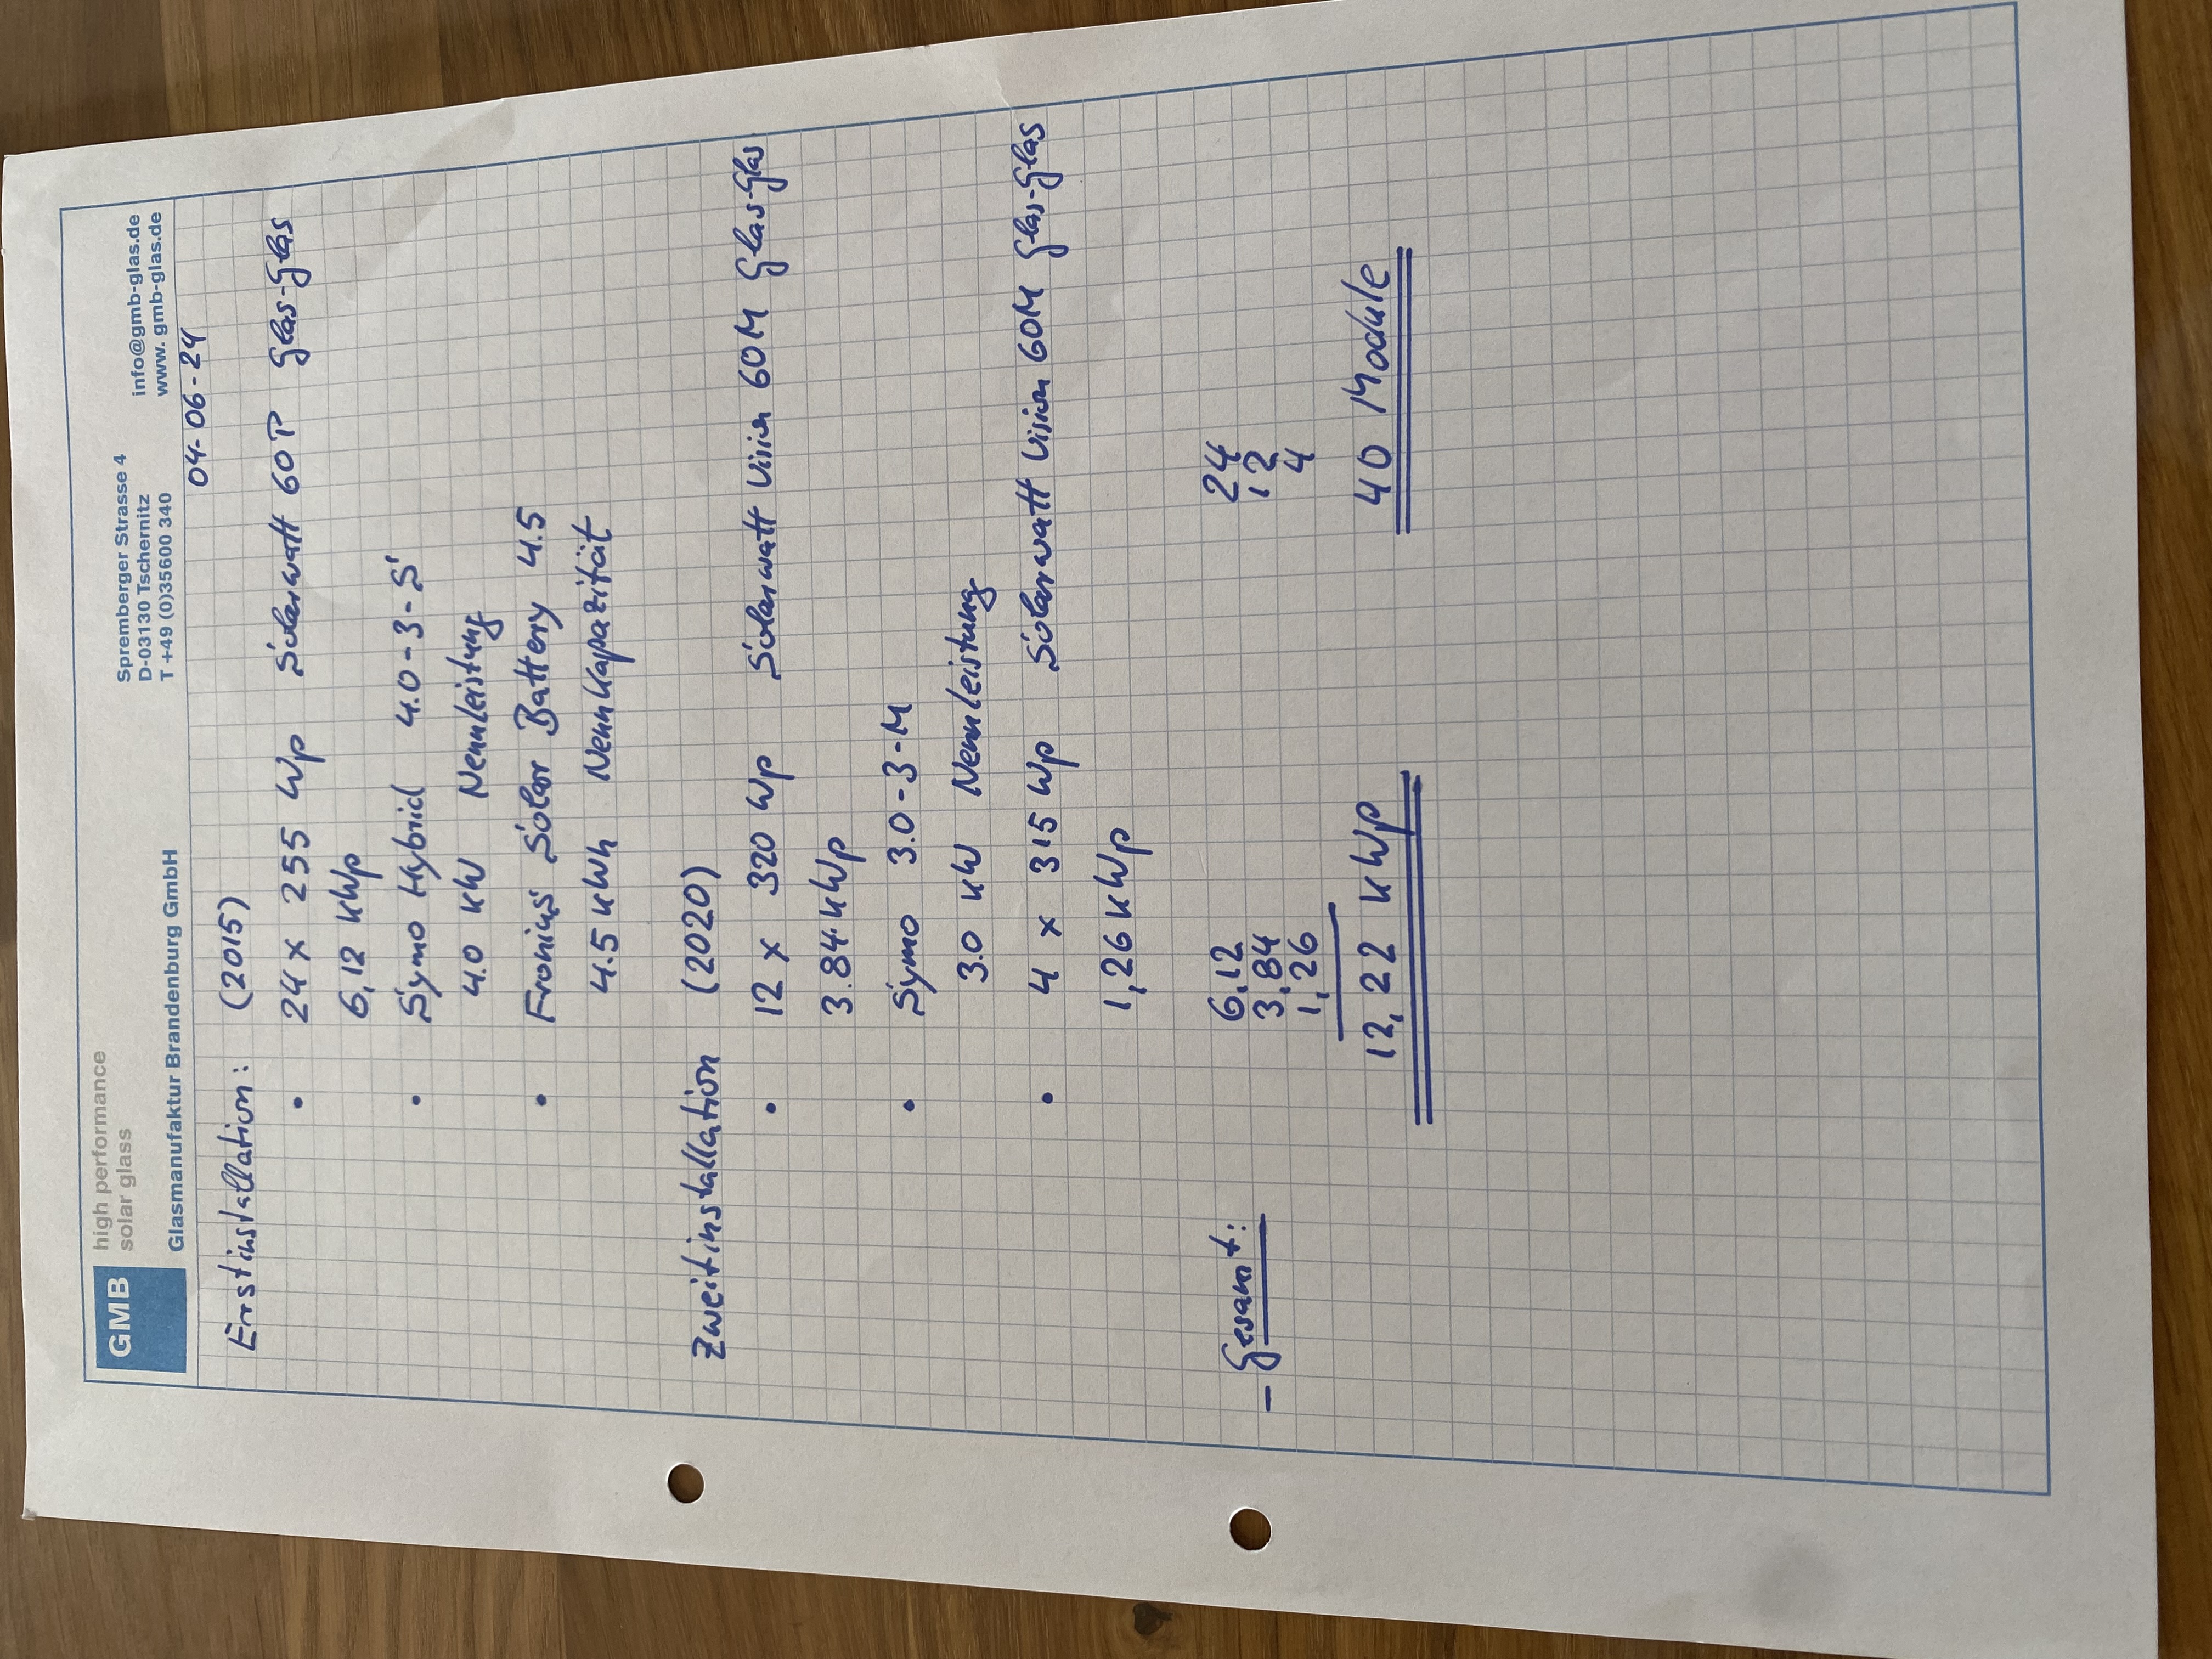 GMB
high performance
solar glass
Glasmanufaktur Brandenburg GmbH
Spremberger Strasse 4
D-03130 Tschernitz
T +49 (0)35600 340
info@gmb-glas.de
www. gmb-glas.de
04-06-24
Erstinstallation: (2015)
• 24 x 255 Wp Solarwatt 60P Glas-Glas
6,12 kWp
• Symo Hybrid 4.0-3-S
4.0 kW Nennleistung
• Fronius Solar Battery 4.5
4.5 kWh Nennkapazität
Zweitinstallation (2020)
• 12 x 320 Wp Solarwatt Vision 60M Glas-Glas
3.84 kWp
• Symo 3.0-3-M
3.0 kW Nennleistung
• 4 x 315 Wp Solarwatt Vision 60M Glas-Glas
1,26 kWp
- Gesamt: 6,12 24
3,84 12
1,26 4
12,22 kWp 40 Module